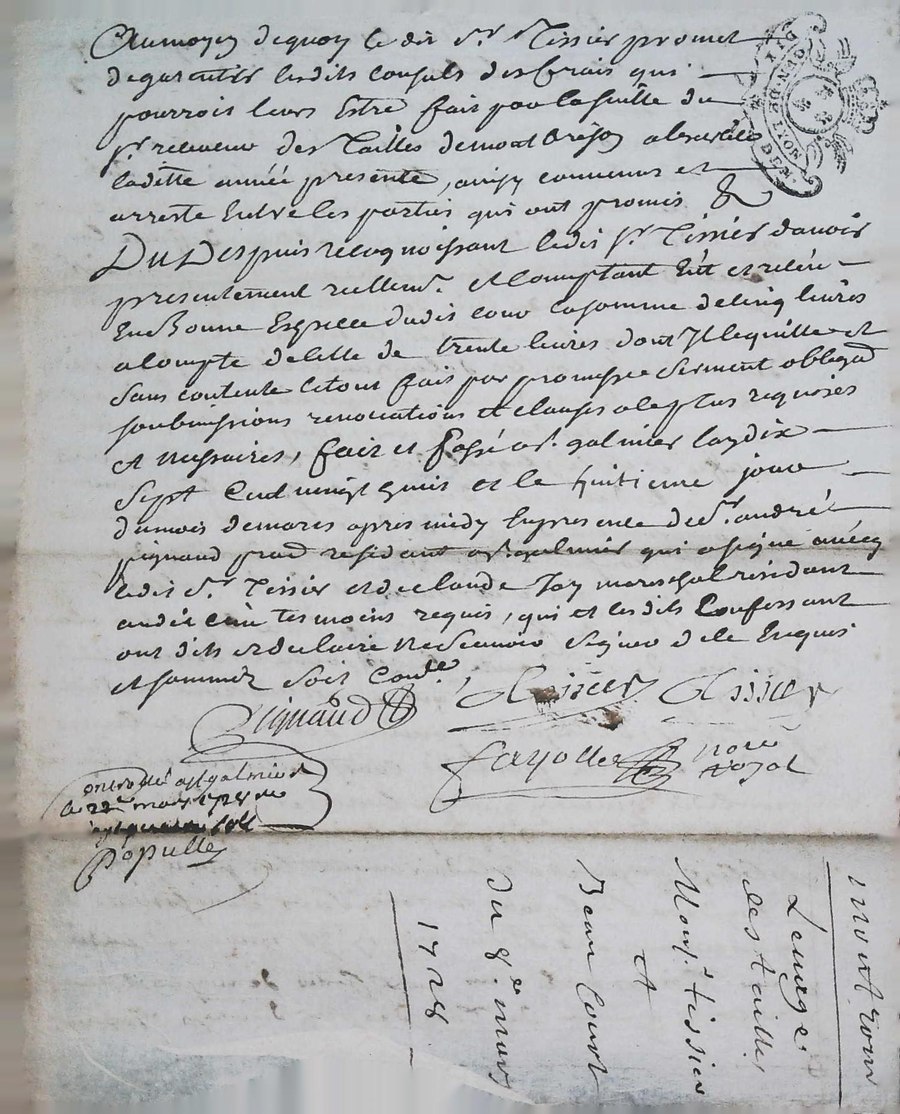 Aumoyen dequoy le dit Sr Tissier promet
degarentir lesdits Consuls des frais qui
pourroit leurs Estre fait par la suitte du
Sr receveur des Tailles demontbrison
laditte année presente, ainsy convenus et
arresté Entre les parties qui ont promis &
Du Despuis recognoissant ledit Sr Tissier davoir
presentement reellemt et Comptant Eüt et retiré
En Bonne Espesse dudit la somme de cinq livres
acompte de Celle de trente livres dont Il le quitte et
sans contente Cetout fait par promesse serment obligaõ
soubmissions renociations et clauses a ce plus requises
et nessaires, fait et passé a St galmier lan dix
Sept Cend vingt huit et le huitieme jour
dumois demares apres midy En presence de Sr andré
pignaud prad residant a St galmier qui a signé avecq
ledit Sr Tissier et de claude Jay mareschal residant
audit temoins requis, qui et lesdits Confessant
ont dit et declaire ne Scavoir Signer de ce Enquis
et sommez soit Conlle
Pignaud Tissier Tissier
Fayolle nore royal
Controllé a St galmier
le 22e mars 1728
Populle
Levage
des tailles
Monsr tissier
A
Beau Court
du 8e mars
1728